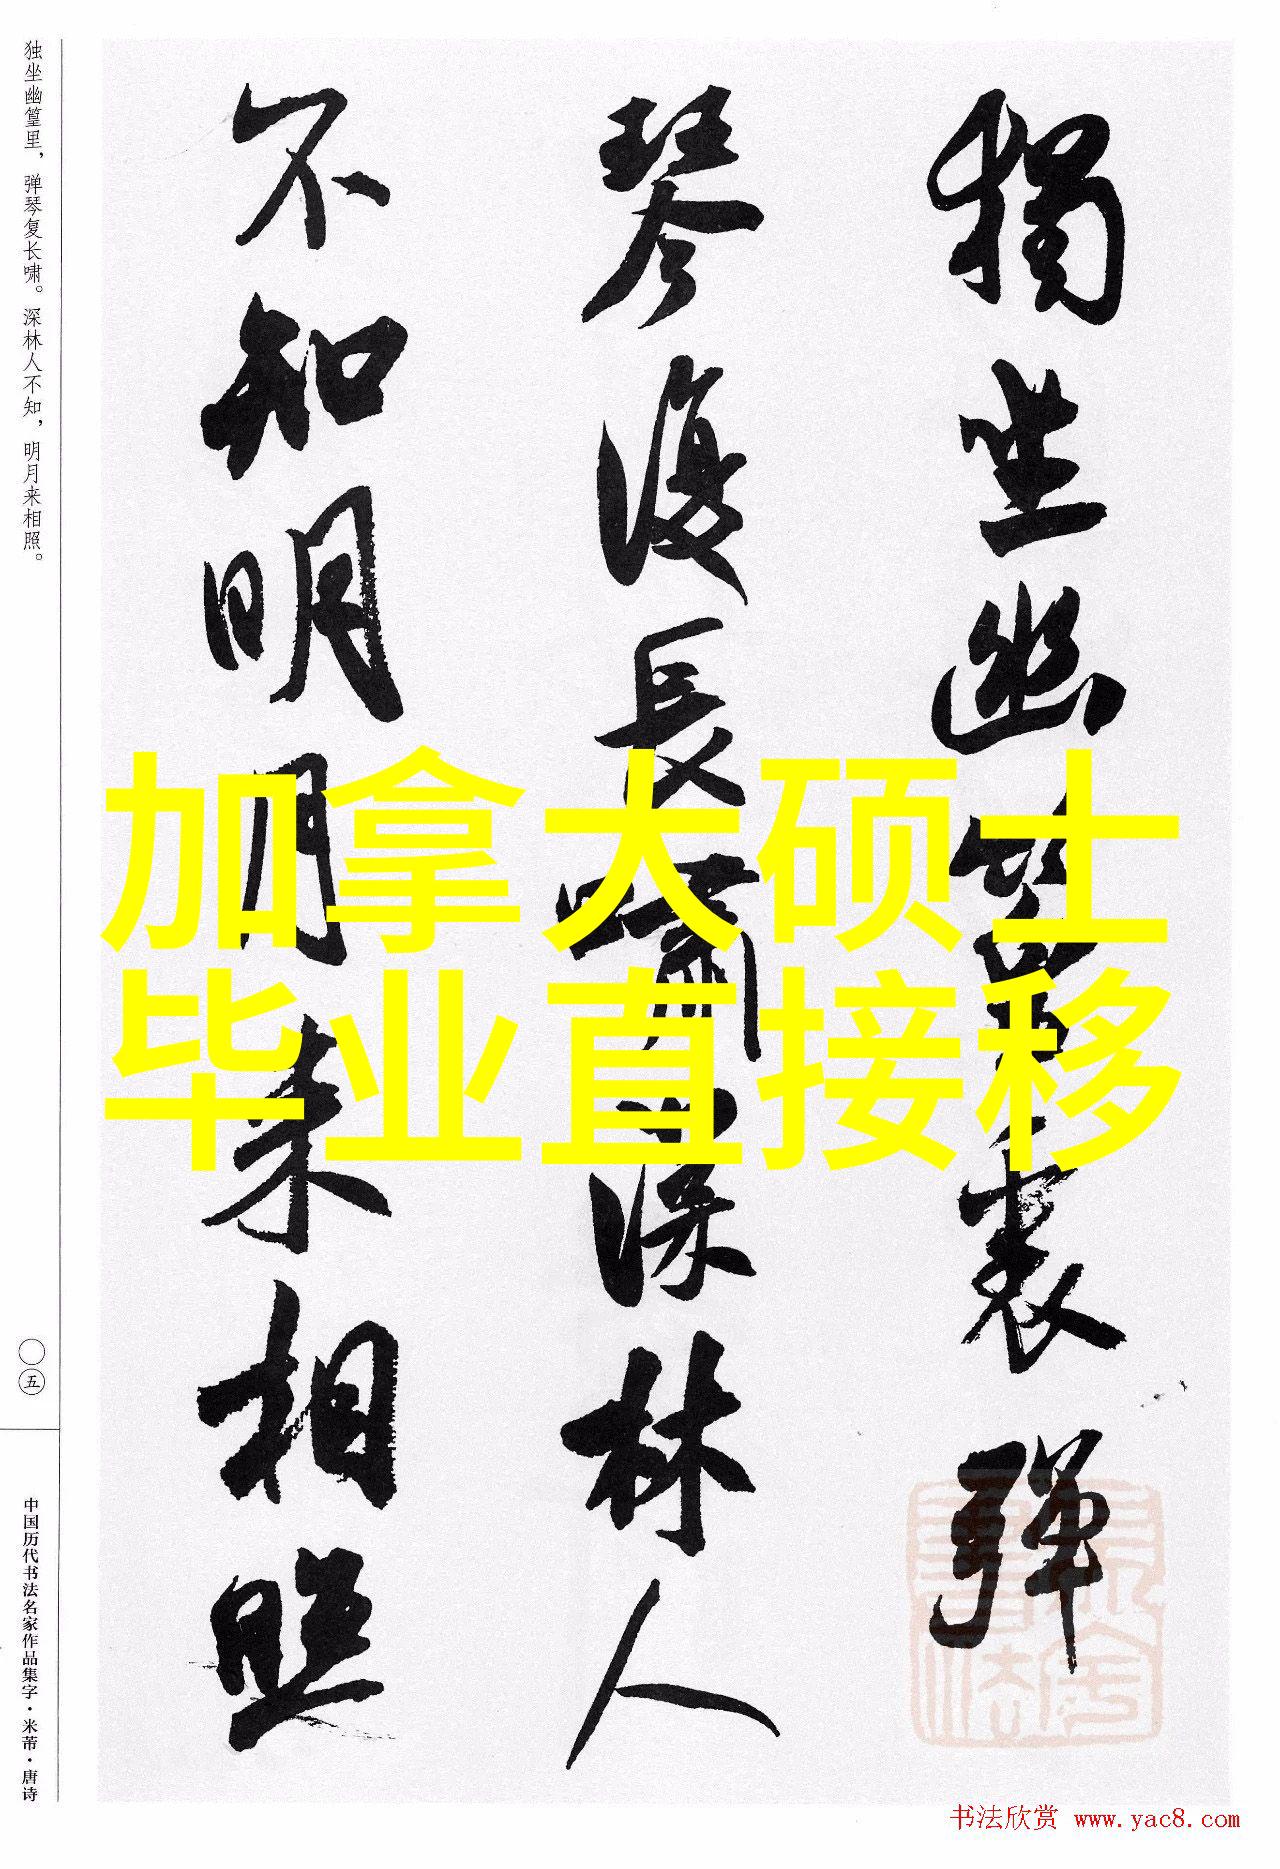 獨坐幽篁裏彈
琴復長嘯深林人
不知明月来相照
加拿大硕士
毕业直接移
独坐幽篁里，弹琴复长啸。深林人不知，明月来相照。
〇五
中国历代书法名家作品集字·米芾·唐诗
书法欣赏 www.yac8.com